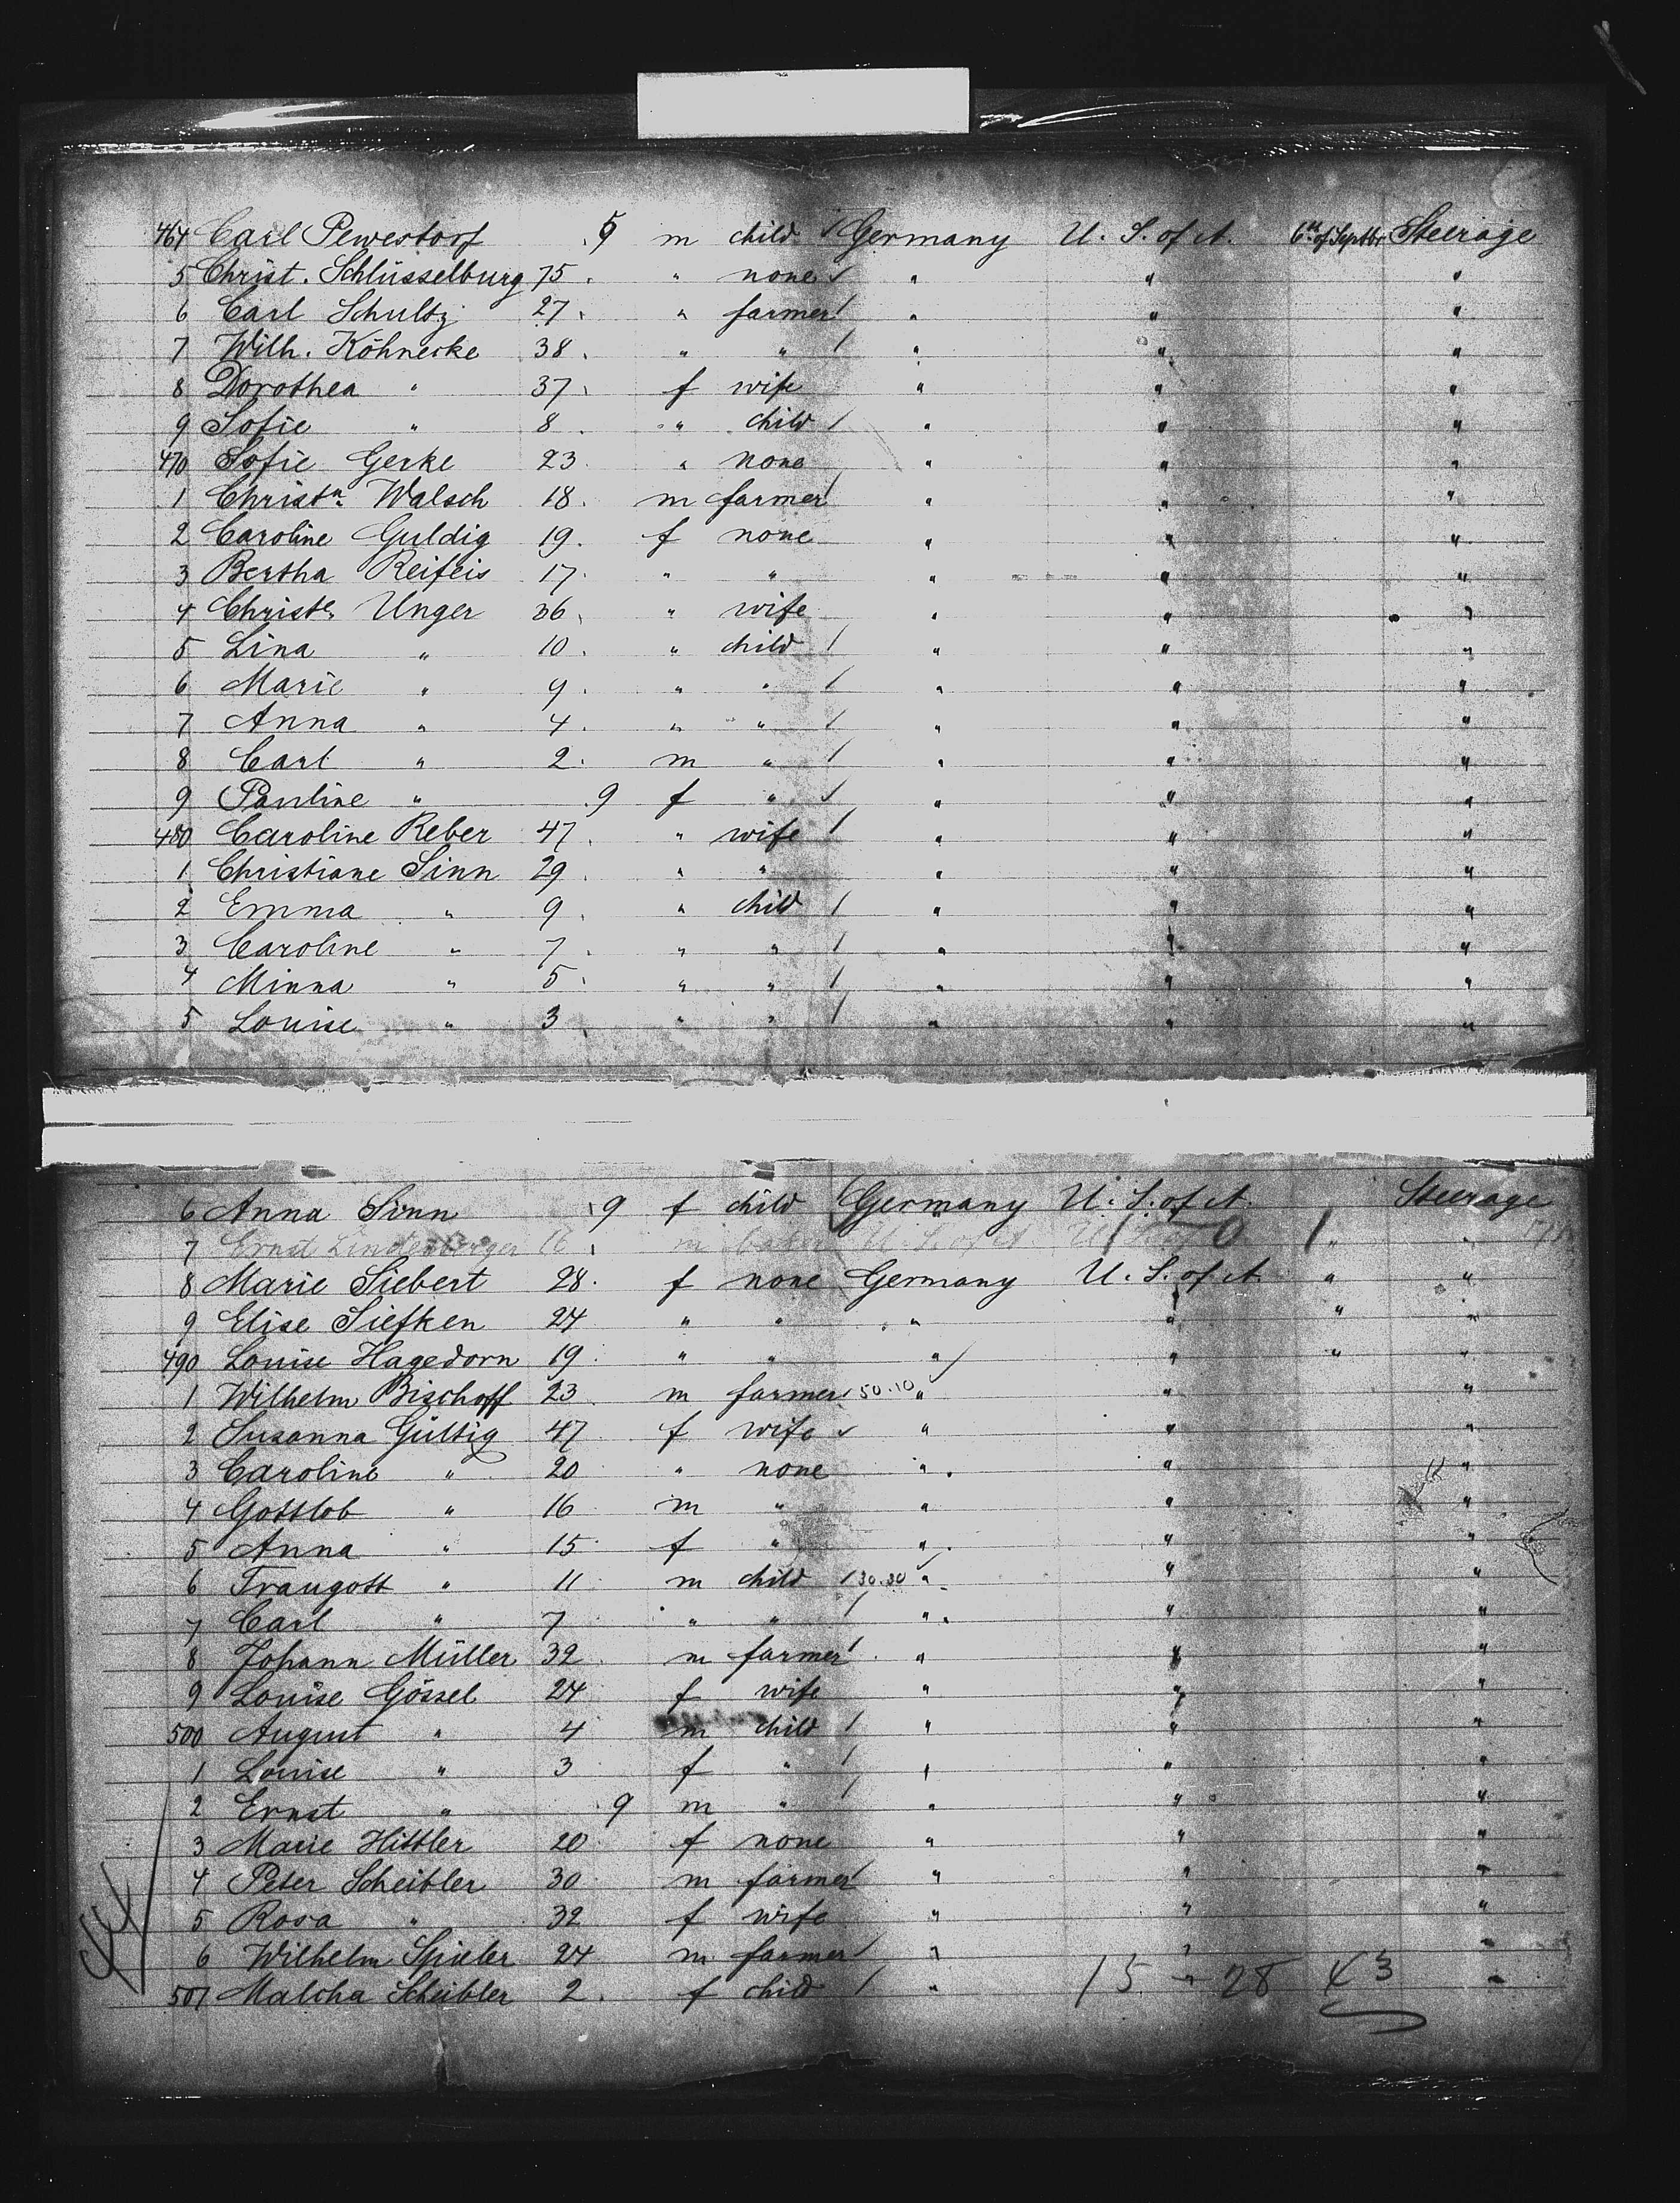 464 Carl Pewestorf 9 m child Germany U. S. of A. 6th of Septbr Steerage
5 Christ. Schlüsselburg 75 " none " " "
6 Carl Schultz 27 " farmer " " "
7 Wilh. Köhnecke 38 " " " " "
8 Dorothea " 37 f wife " " "
9 Sofie " 8 " child " " "
470 Sofie Gerke 23 " none " " "
1 Christn. Walsch 18 m farmer " " "
2 Caroline Guldig 19 f none " " "
3 Bertha Reifeis 17 " " " " "
4 Christe. Unger 36 " wife " " "
5 Lina " 10 " child " " "
6 Marie " 9 " " " " "
7 Anna " 4 " " " " "
8 Carl " 2 m " " " "
9 Pauline " 9 f " " " "
480 Caroline Reber 47 " wife " " "
1 Christiane Sinn 29 " " " " "
2 Emma " 9 " child " " "
3 Caroline " 7 " " " " "
4 Minna " 5 " " " " "
5 Louise " 3 " " " " "
6 Anna Sinn 9 f child Germany U. S. of A. Steerage
7 Ernst Lindenberger 16 m baker U. S. of A. " "
8 Marie Siebert 28 f none Germany U. S. of A. " "
9 Elise Siefken 24 " " " " " "
490 Louise Hagedorn 19 " " " " " "
1 Wilhelm Bischoff 23 m farmer 50.10 " " "
2 Susanna Gültig 47 f wife " " "
3 Caroline " 20 " none " " "
4 Gottlob " 16 m " " " "
5 Anna " 15 f " " " "
6 Traugott " 11 m child 30.30 " " "
7 Carl " 7 " " " " "
8 Johann Müller 32 m farmer " " "
9 Louise Gössel 24 f wife " " "
500 August " 4 m child " " "
1 Louise " 3 f " " " "
2 Ernst " 9 m " " " "
3 Marie Hittler 20 f none " " "
4 Peter Scheibler 30 m farmer " " "
5 Rosa " 32 f wife " " "
6 Wilhelm Spieler 24 m farmer " " "
507 Malcha Scheibler 2 f child " 15 " 28 43 "